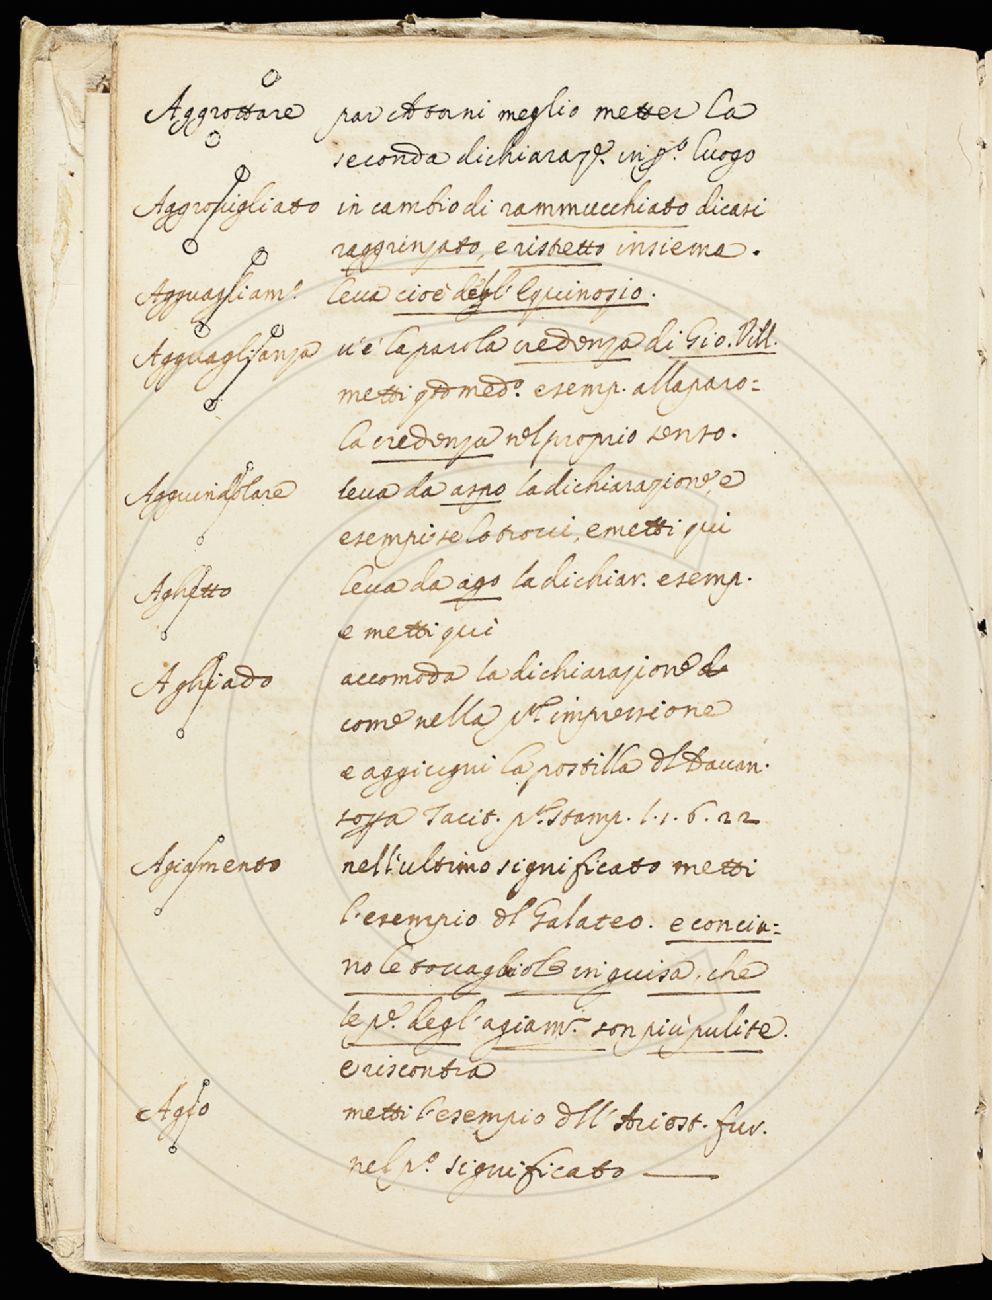 Aggrottare par ch torni meglio metter la
seconda dichiaraz.e in q.o luogo
Aggrovigliato in cambio di rammucchiato dicasi
raggrinzato, e ristretto insieme.
Agguagliam.o leva cioè degl' Equinozio.
Agguaglianza v'è la parola credenza di Gio. Vill.
metti med.o esemp. alla paro=
la credenza nel proprio senso.
Agguindolare leva da aspo la dichiarazione, e
esempi se lo trovi, e metti qui
Aghetto leva da ago la dichiar. esemp.
e metti qui
Aghiado accomoda la dichiarazione
come nella p.a impressione
e aggiugni la postilla dl Davan.
sopra Tacit. p.a stamp. l. 1. 6. 22
Agiamento nell'ultimo significato metti
l'esempio dl Galateo. e concia=
no le tovagliole in guisa, che
le p.e degl'agiam.ti son più pulite.
e riscontra
Agio metti l'esempio dll'Ariost. fur.
nel p.o significato